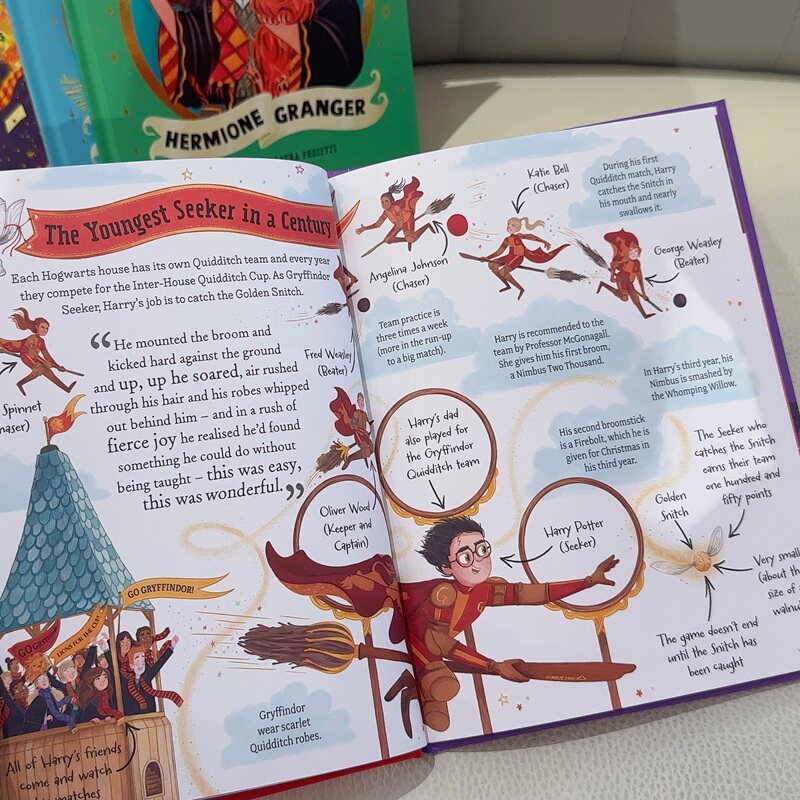 HERMIONE GRANGER
The Youngest Seeker in a Century
Each Hogwarts house has its own Quidditch team and every year
they compete for the Inter-House Quidditch Cup. As Gryffindor
Seeker, Harry's job is to catch the Golden Snitch.
“He mounted the broom and
kicked hard against the ground
and up, up he soared, air rushed
through his hair and his robes whipped
out behind him – and in a rush of
fierce joy he realised he'd found
something he could do without
being taught – this was easy,
this was wonderful.”
Spinnet
Fred Weasley
(Beater)
Oliver Wood
(Keeper and
Captain)
GO GRYFFINDOR!
LIONS FOR THE CUP
All of Harry's friends
come and watch
matches
Gryffindor
wear scarlet
Quidditch robes.
Angelina Johnson
(Chaser)
Katie Bell
(Chaser)
During his first
Quidditch match, Harry
catches the Snitch in
his mouth and nearly
swallows it.
George Weasley
(Beater)
Team practice is
three times a week
(more in the run-up
to a big match).
Harry is recommended to the
team by Professor McGonagall.
She gives him his first broom,
a Nimbus Two Thousand.
In Harry's third year, his
Nimbus is smashed by
the Whomping Willow.
Harry's dad
also played for
the Gryffindor
Quidditch team
His second broomstick
is a Firebolt, which he is
given for Christmas in
his third year.
The Seeker who
catches the Snitch
earns their team
one hundred and
fifty points
Harry Potter
(Seeker)
Golden
Snitch
Very small
(about the
size of a
The game doesn't end
until the Snitch has
been caught